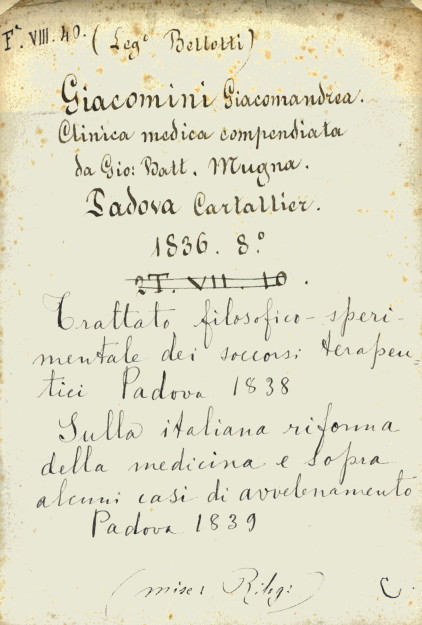 F. VIII. 40. (Leg.º Bellotti)
Giacomini Giacomandrea.
Clinica medica compendiata
da Gio: Batt. Mugna.
Padova Cartallier.
1836. 8.º
2T. VII. 10.
Trattato filosofico-speri-
mentale dei soccorsi terapeu-
tici Padova 1838
Sulla italiana riforma
della medicina e sopra
alcuni casi di avvelenamento
Padova 1839
(misc:
C.